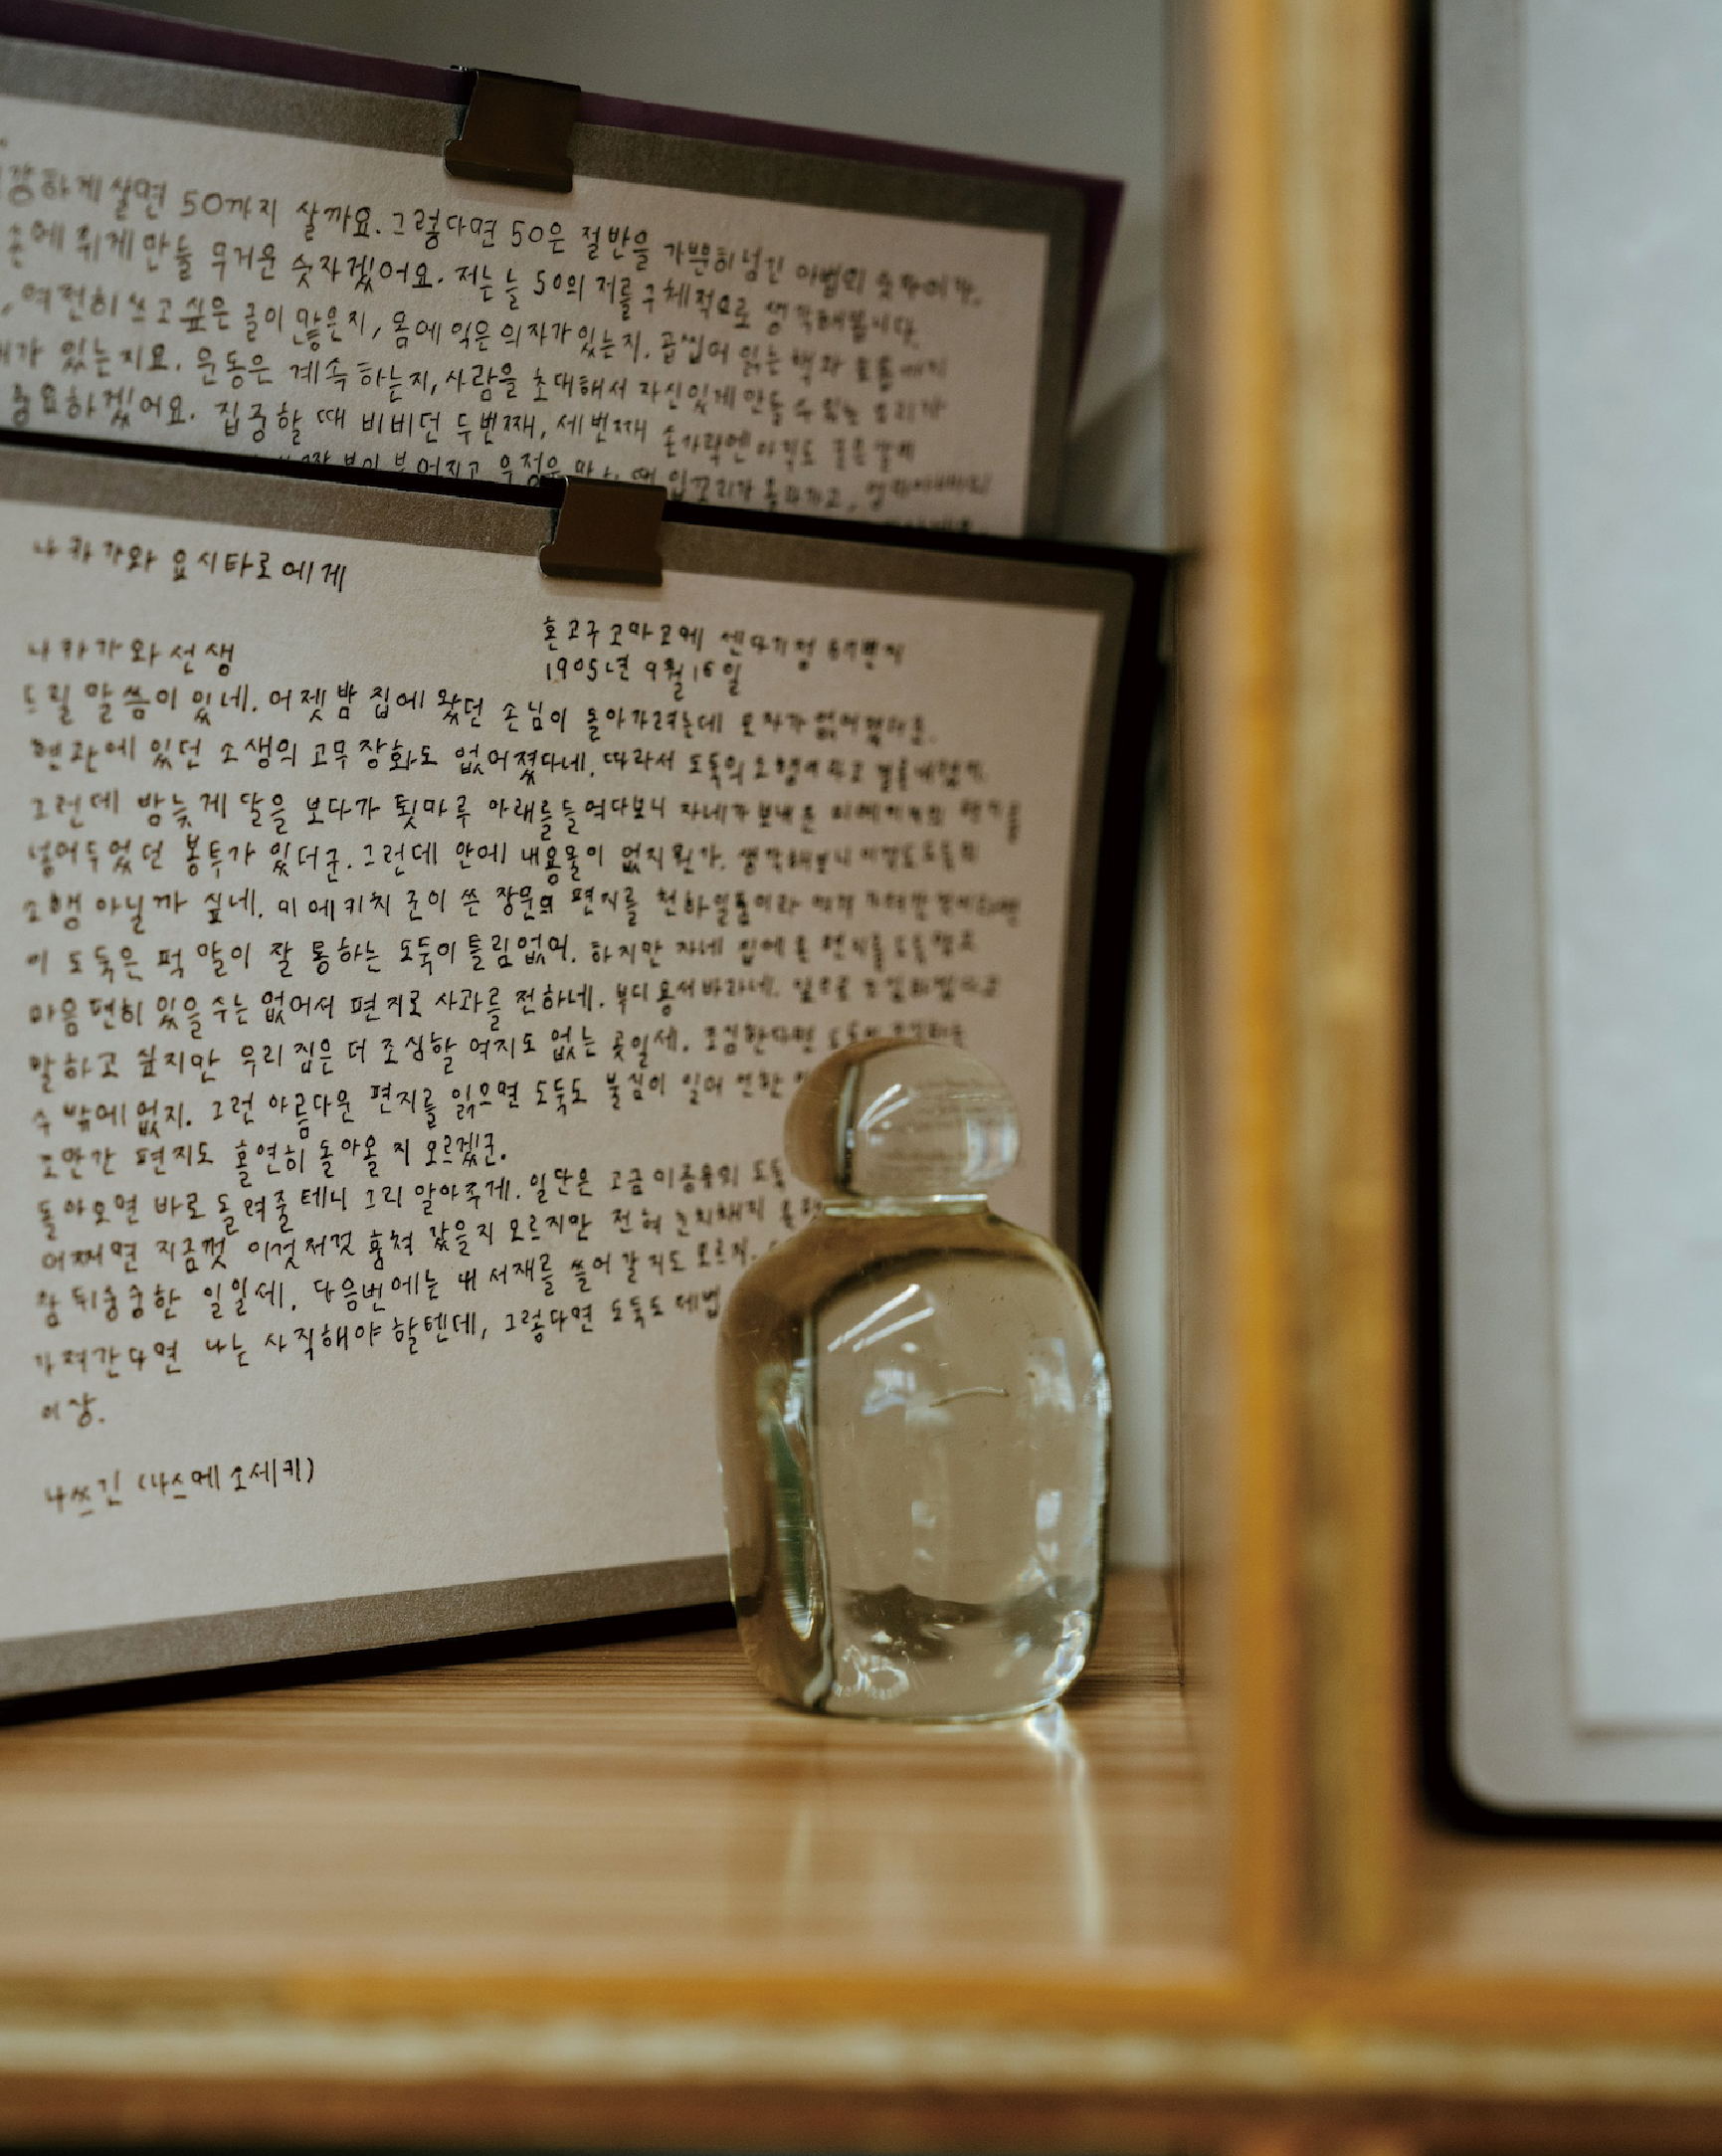 강하게 살면 50까지 살까요. 그렇다면 50은 절반을 가뿐히 넘긴 마법의 숫자이자,
손에 쥐게 만들 무거운 숫자겠어요. 저는 늘 50의 저를 구체적으로 생각해봅니다.
여전히 쓰고 싶은 글이 많은지, 몸에 익은 의자가 있는지. 곱씹어 읽는 책과
가 있는지요. 운동은 계속 하는지, 사람을 초대해서 자신있게 만들 수 있는 요리가
중요하겠어요. 집중할 때 비비던 두번째, 세번째 손가락엔 아직도
입꼬리가 올라가고,
나카가와 요시타로에게
혼고구 고마고메 센다기정 57번지
1905년 9월 16일
나카가와 선생
드릴 말씀이 있네. 어젯밤 집에 왔던 손님이 돌아가려는데 모자가 없어졌더군.
현관에 있던 소생의 고무 장화도 없어졌다네. 따라서 도둑의 소행이라고
그런데 밤늦게 달을 보다가 툇마루 아래를 들여다보니 자네가 보내온 미에키치의 편지를
넣어두었던 봉투가 있더군. 그런데 안에 내용물이 없지 뭔가. 생각해보니 이것도 도둑의
소행 아닐까 싶네. 미에키치 군이 쓴 장문의 편지를 천하일품이라
이 도둑은 퍽 말이 잘 통하는 도둑이 틀림없어. 하지만 자네 집에 온 편지를 도둑맞고
마음 편히 있을 수는 없어서 편지로 사과를 전하네. 부디 용서바라네. 앞으로 조심하겠다고
말하고 싶지만 우리 집은 더 조심할 여지도 없는 곳일세. 조심한다면 도둑이
수 밖에 없지. 그런 아름다운 편지를 읽으면 도둑도 불심이 일어
조만간 편지도 홀연히 돌아올 지 모르겠군.
돌아오면 바로 돌려줄테니 그리 알아주게. 일단은 고금 이종류의 도둑
어쩌면 지금껏 이것저것 훔쳐 갔을지 모르지만 전혀 눈치채지 못했
참 뒤숭숭한 일일세. 다음번에는 내 서재를 쓸어 갈 지도 모르지.
가져간다면 나는 사직해야 할텐데, 그렇다면 도둑도 제법
이상.
나쓰긴 (나스메 소세키)